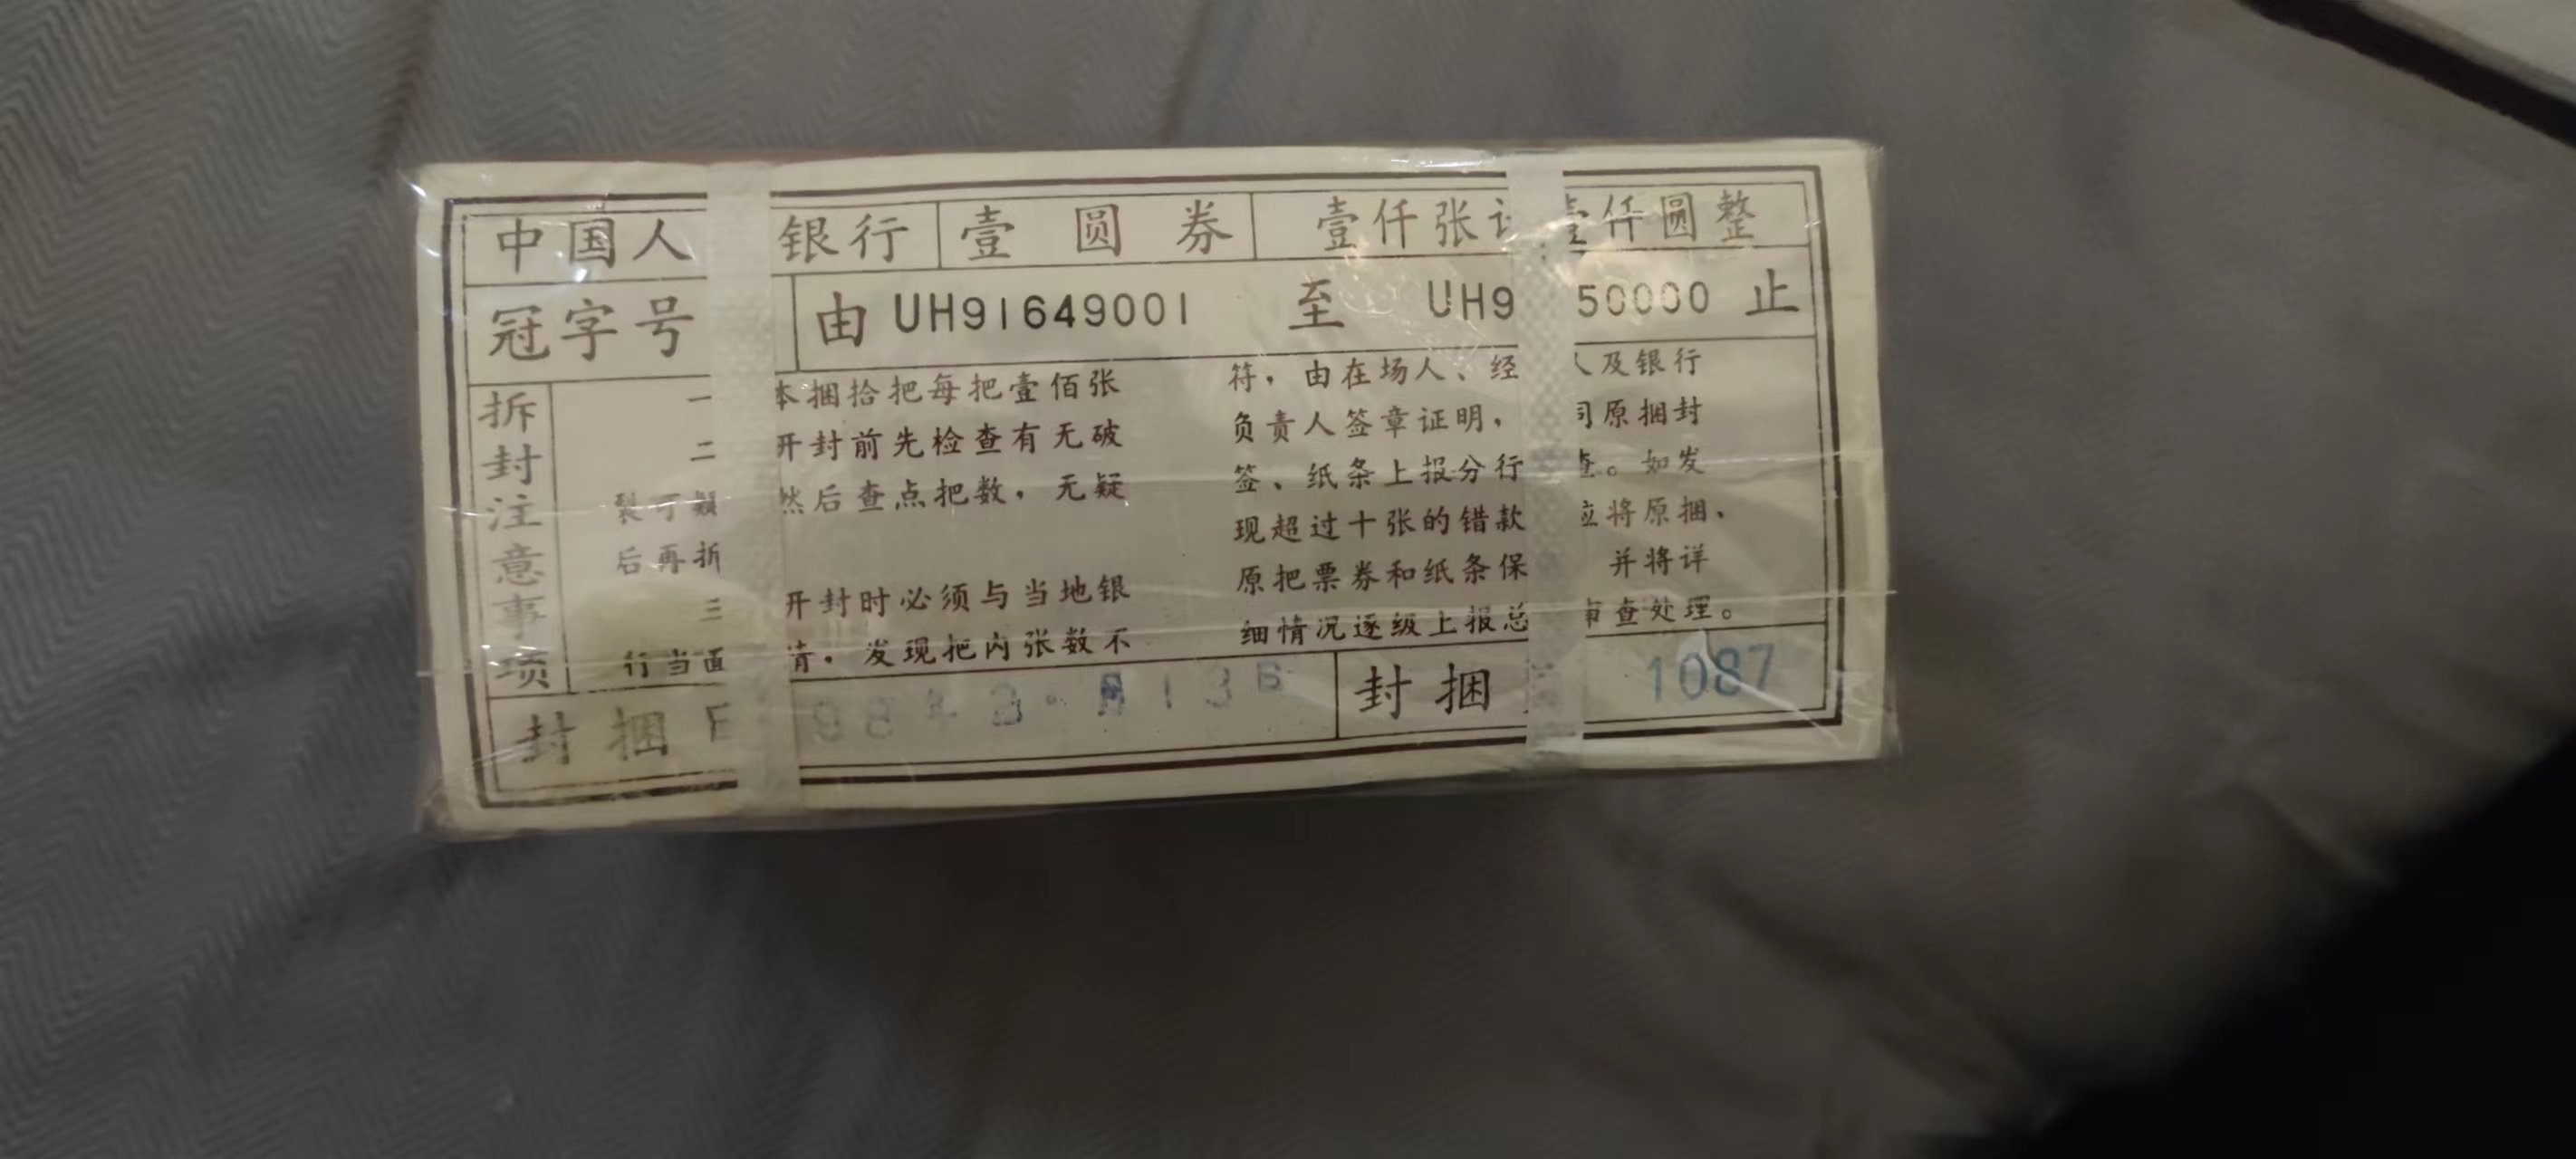 中国人 银行 壹圆券 壹仟张计壹仟圆整
冠字号 由 UH91649001 至 UH9 50000 止
拆封注意事项
一 本捆拾把每把壹佰张
二 开封前先检查有无破
裂可疑 然后查点把数，无疑
后再拆
三 开封时必须与当地银
行当面 清。发现把内张数不
符，由在场人、经 人及银行
负责人签章证明， 同原捆封
签、纸条上报分行 查。如发
现超过十张的错款 应将原捆、
原把票券和纸条保 并将详
细情况逐级上报总 审查处理。
封捆 98 封捆 1087